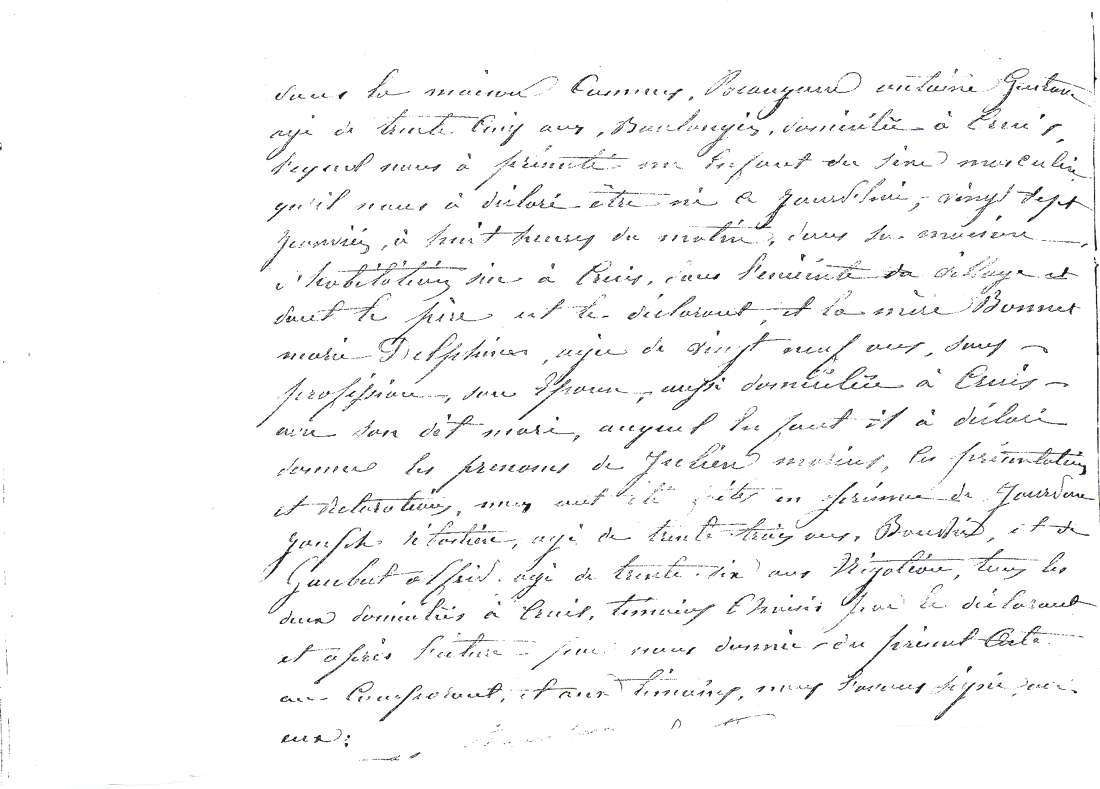 dans la maison Commune, antoine Gustave
agé de trente Cinq ans, Boulanger, domicilié à Cruis,
lequel nous à présenté un Enfant du sèxe masculin
qu'il nous à déclaré être né Ce Jourd'hui, vingt sept
Janvier, à huit heures du matin, dans sa maison
d'habitation sise à Cruis, dans l'enceinte du village et
dont le père est le déclarant, et la mère Bonnet
marie Delphine, agée de vingt neuf ans, sans
profession, son Epouse, aussi domiciliée à Cruis
avec son dit mari, auquel Enfant il à déclaré
donner les prenoms de Julien marius, les présentation
et déclaration, nous ont été faites en présence de Jourdan
Joseph agé de trente trois ans, et de
alfred agé de trente six ans Négotian, tous les
deux domiciliés à Cruis, témoins Choisis par le déclarant
et après lecture par nous donnée du présent Acte
au Comparant, et aux témoins, nous l'avons signé avec
eux: